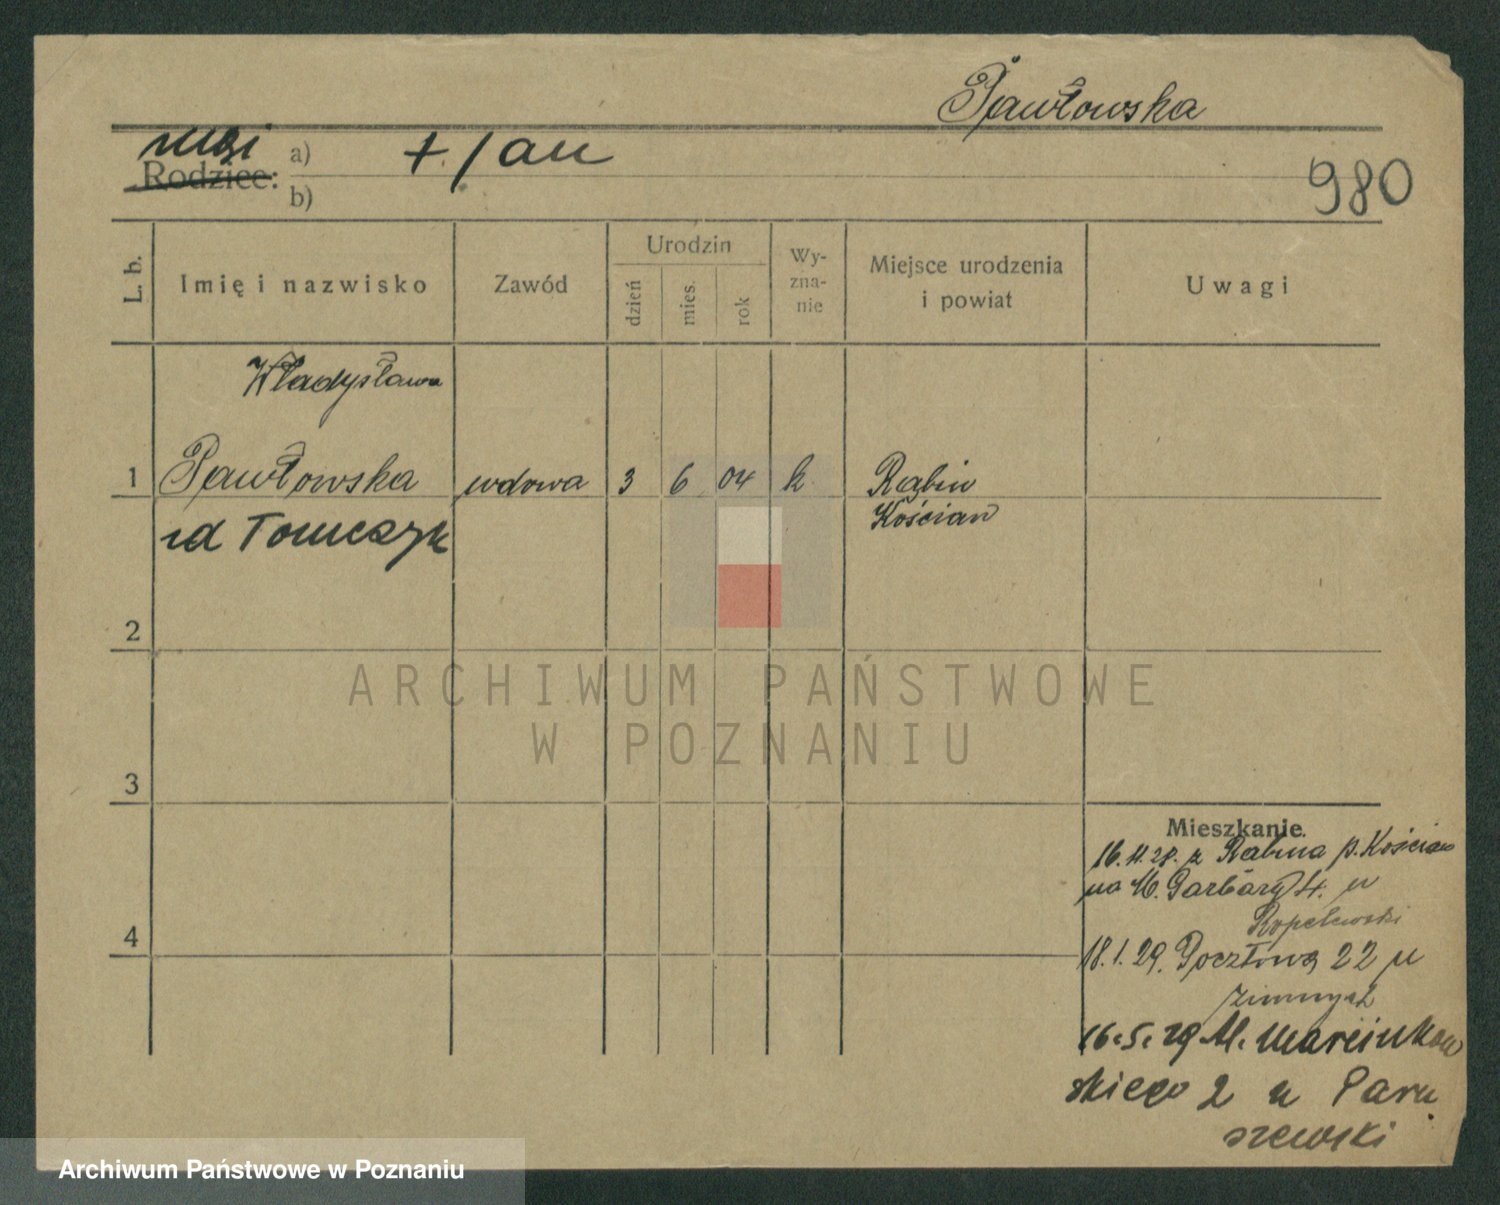 Pawłowska
mąż
Rodzice: a) + Jan
b)
980
L. b.
Imię i nazwisko
Zawód
Urodzin
dzień
mies.
rok
Wy-
zna-
nie
Miejsce urodzenia
i powiat
Uwagi
Władysława
1 Pawłowska wdowa 3 6 04 k Rąbiń
Kościan
zd Tomczyk
2
3
4
Mieszkanie.
16.11.28. z Rąbina p. Kościan
na M. Garbary 4. u
Ropelewski
18.1.29. Pocztowa 22 u
Zimnych
16.5.29 Al. Marcinkow
skiego 2 u Paru
szewski
ARCHIWUM PAŃSTWOWE
W POZNANIU
Archiwum Państwowe w Poznaniu